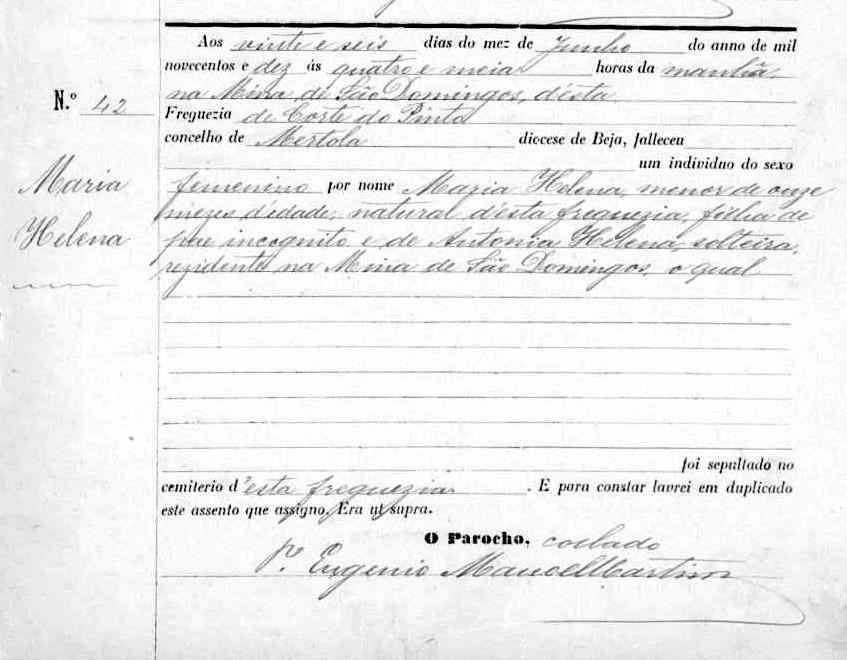 Aos vinte e seis dias do mez de Junho do anno de mil
novecentos e dez ás quatro e meia horas da manhã
na Mina de São Domingos, d'ésta
N.º 42
Freguezia de Corte do Pinto
concelho de Mertola diocese de Beja, falleceu
um individuo do sexo
Maria
Helena
femenino por nome Maria Helena, menor de onze
mezes d'edade, natural d'ésta freguezia, filha de
pae incognito e de Antonia Helena, solteira,
rezidente na Mina de São Domingos, o qual
foi sepultado no
cemiterio d'esta freguezia. E para constar lavrei em duplicado
este assento que assigno, Era ut supra.
O Parocho, collado
P.e Eugenio Manoel Martins